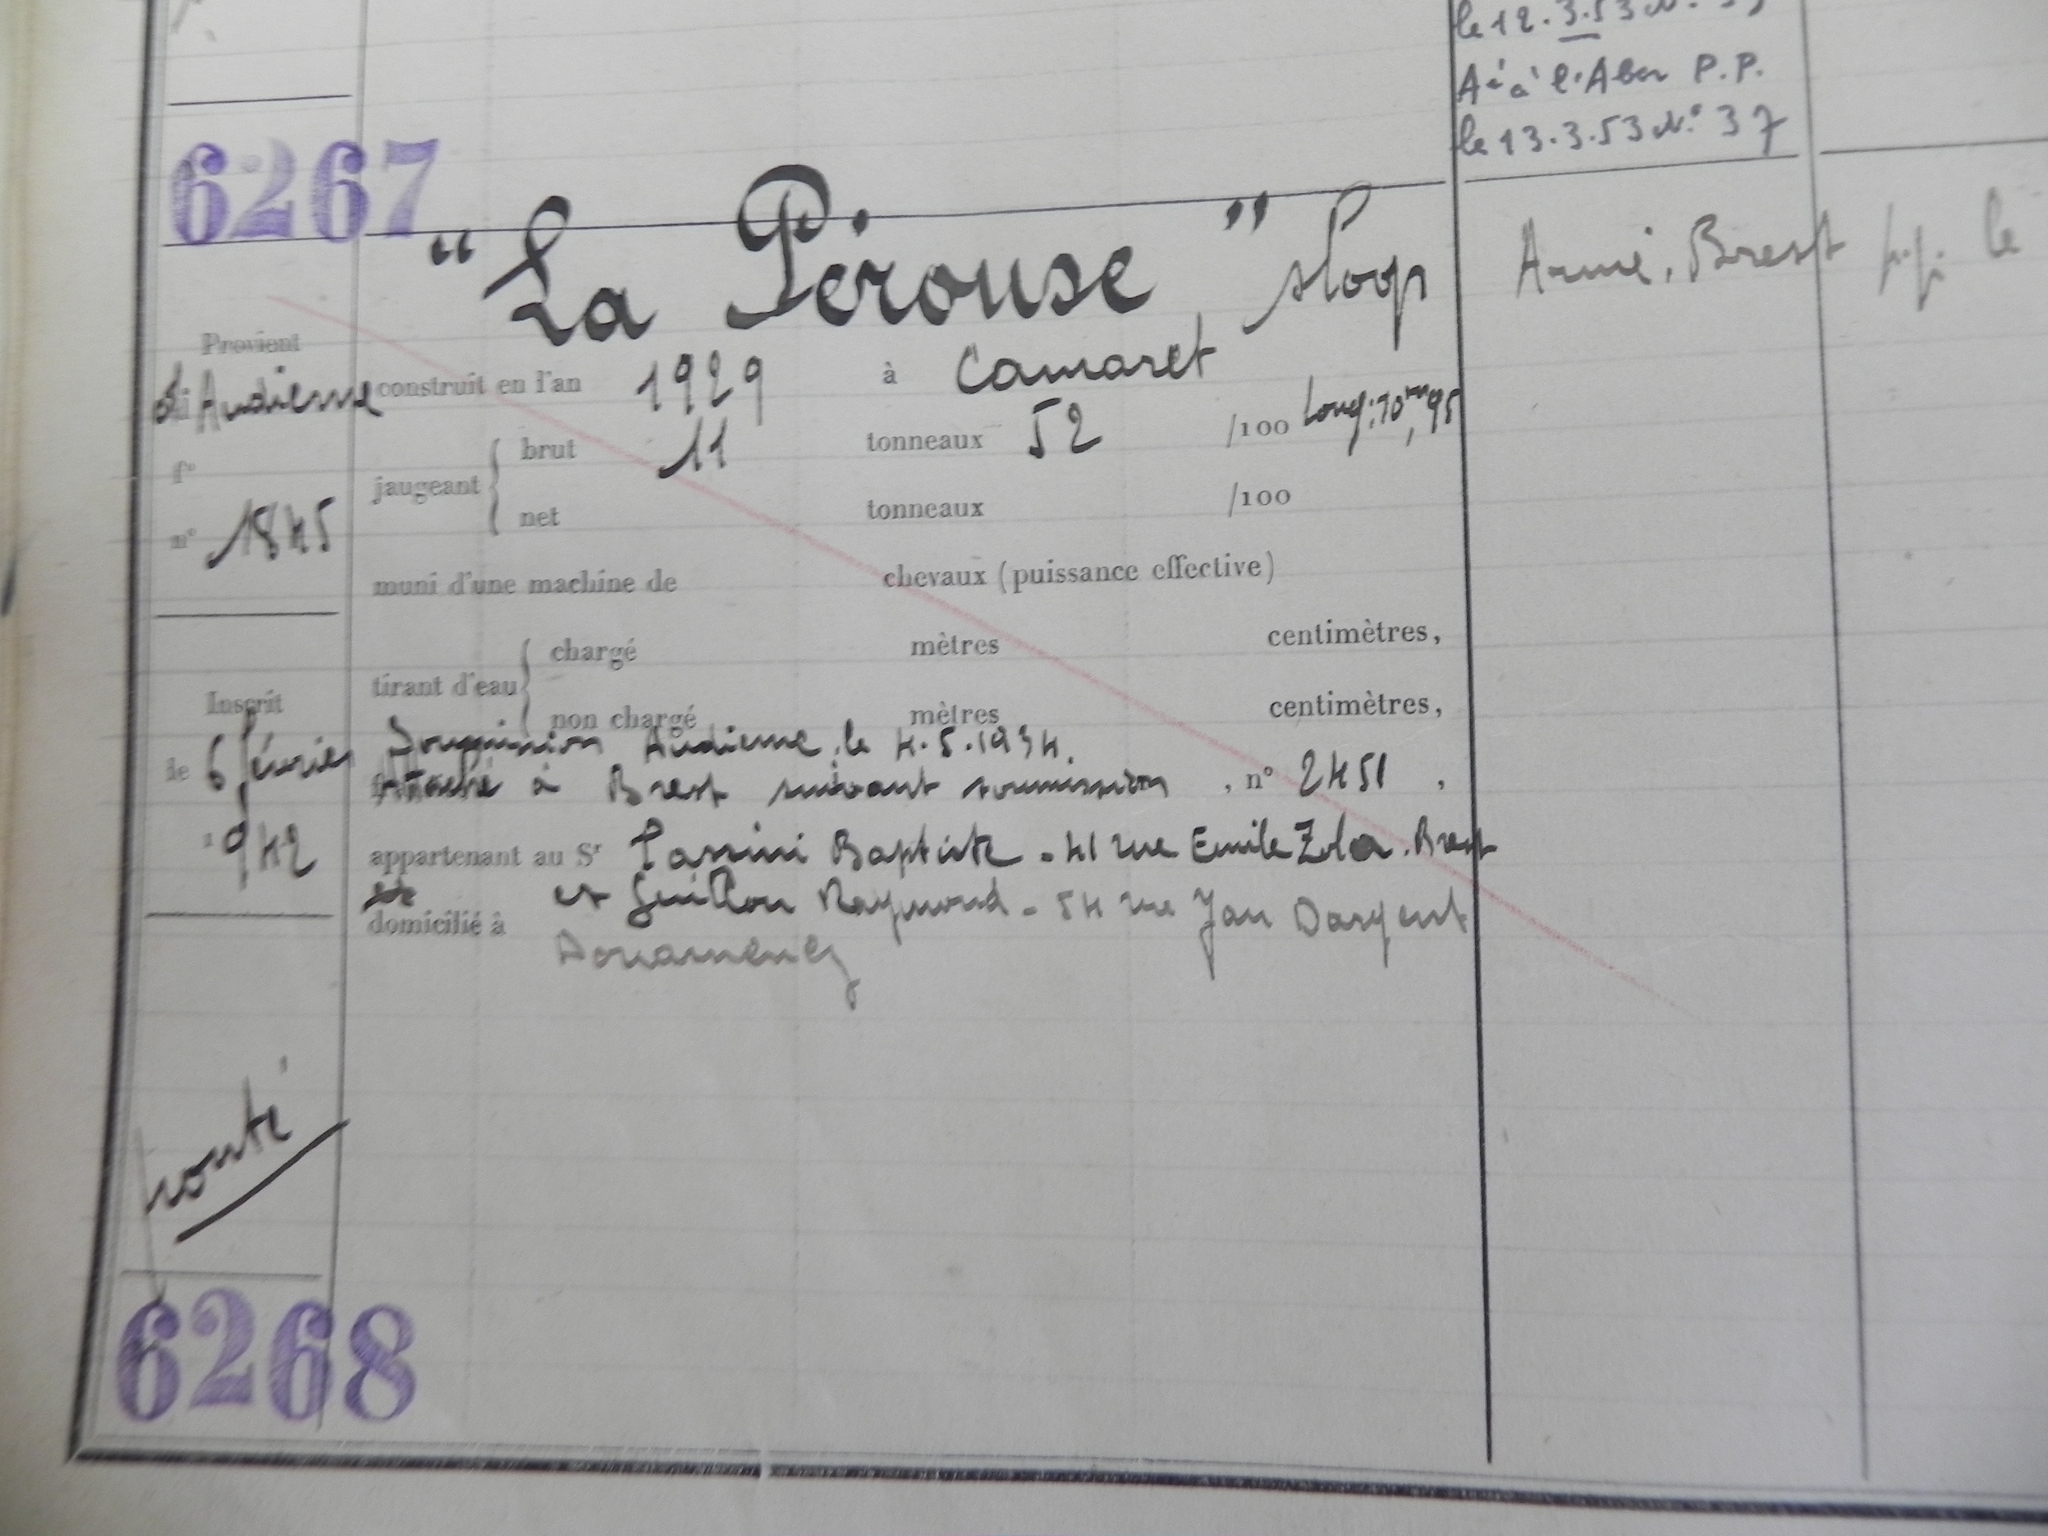 le 12.3.53 N°
Aé à l'Aber P.P.
le 13.3.53 N° 37
6267
"La Pérouse" sloop
Armé, Brest p.p. le
Provient
d'Audierne
f°
n° 1845
construit en l'an 1929 à Camaret
jaugeant brut 11 tonneaux 52 /100 Long: 10m,95
net tonneaux /100
muni d'une machine de chevaux (puissance effective)
tirant d'eau chargé mètres centimètres,
non chargé mètres centimètres,
Inscrit
le 6 février
1942
Soumission Audierne, le 4.5.1934.
attaché à Brest suivant soumission, n° 2451,
appartenant au Sr Baptiste - 41 rue Emile Zola. Brest
et Guillou Raymond - 54 rue Yan Dargent
domicilié à Douarnenez
6268